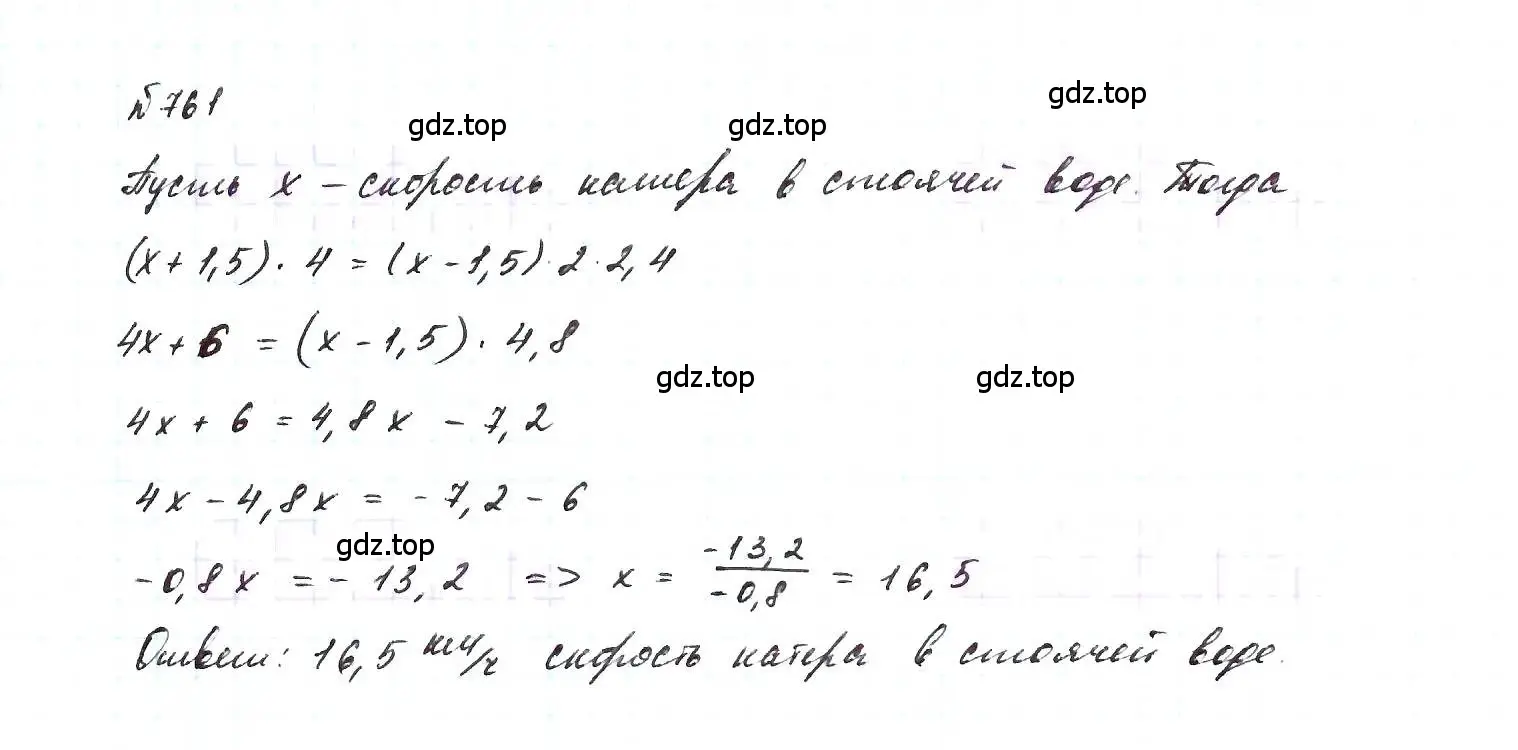 №761
gdz.top
gdz.top
gdz.top
Пусть x – скорость катера в стоячей воде. Тогда
(x + 1,5) · 4 = (x - 1,5) · 2 · 2,4
4x + 6 = (x - 1,5) · 4,8
gdz.top
gdz.top
4x + 6 = 4,8x - 7,2
4x - 4,8x = -7,2 - 6
gdz.top
-0,8x = -13,2 => x = -13,2/-0,8 = 16,5
Ответ: 16,5 км/ч скорость катера в стоячей воде.